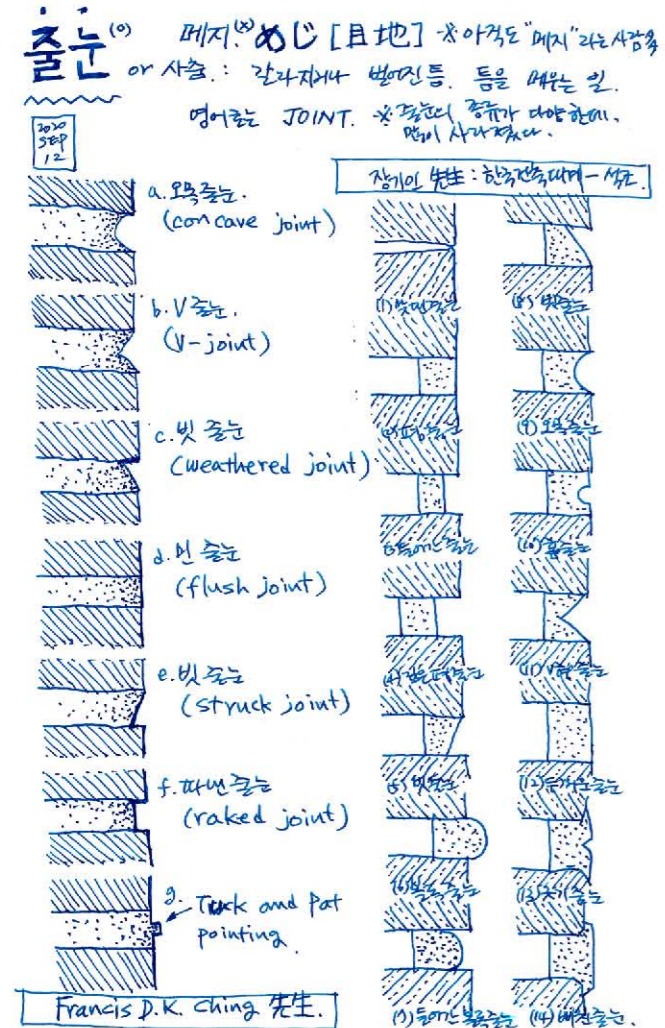 줄눈(o) 메지.(x) めじ [目地] ※아직도 "메지"라는 사람多
or 사춤.: 갈라지거나 벌어진 틈. 틈을 메우는 일.
영어로는 JOINT. ※줄눈의 종류가 다양한데,
많이 사라졌다.
2020
SEP
12
장기인 先生: 한국건축대계-석조.
a. 오목줄눈.
(concave joint)
b. V 줄눈.
(V-joint)
c. 빗 줄눈
(weathered joint)
d. 민 줄눈
(flush joint)
e. 빗줄눈
(struck joint)
f. 따낸줄눈
(raked joint)
g. Tuck and Pat
pointing.
Francis D.K. Ching 先生.
(1)
(2)평줄눈
(3)들어간 줄눈
(4)
(5)빗줄눈
(6)볼록줄눈
(7)들어간 볼록줄눈
(8)빗줄눈
(9)오목줄눈
(10)홈줄눈
(11)V형 줄눈
(12)줄눈
(13)줄눈
(14)줄눈.